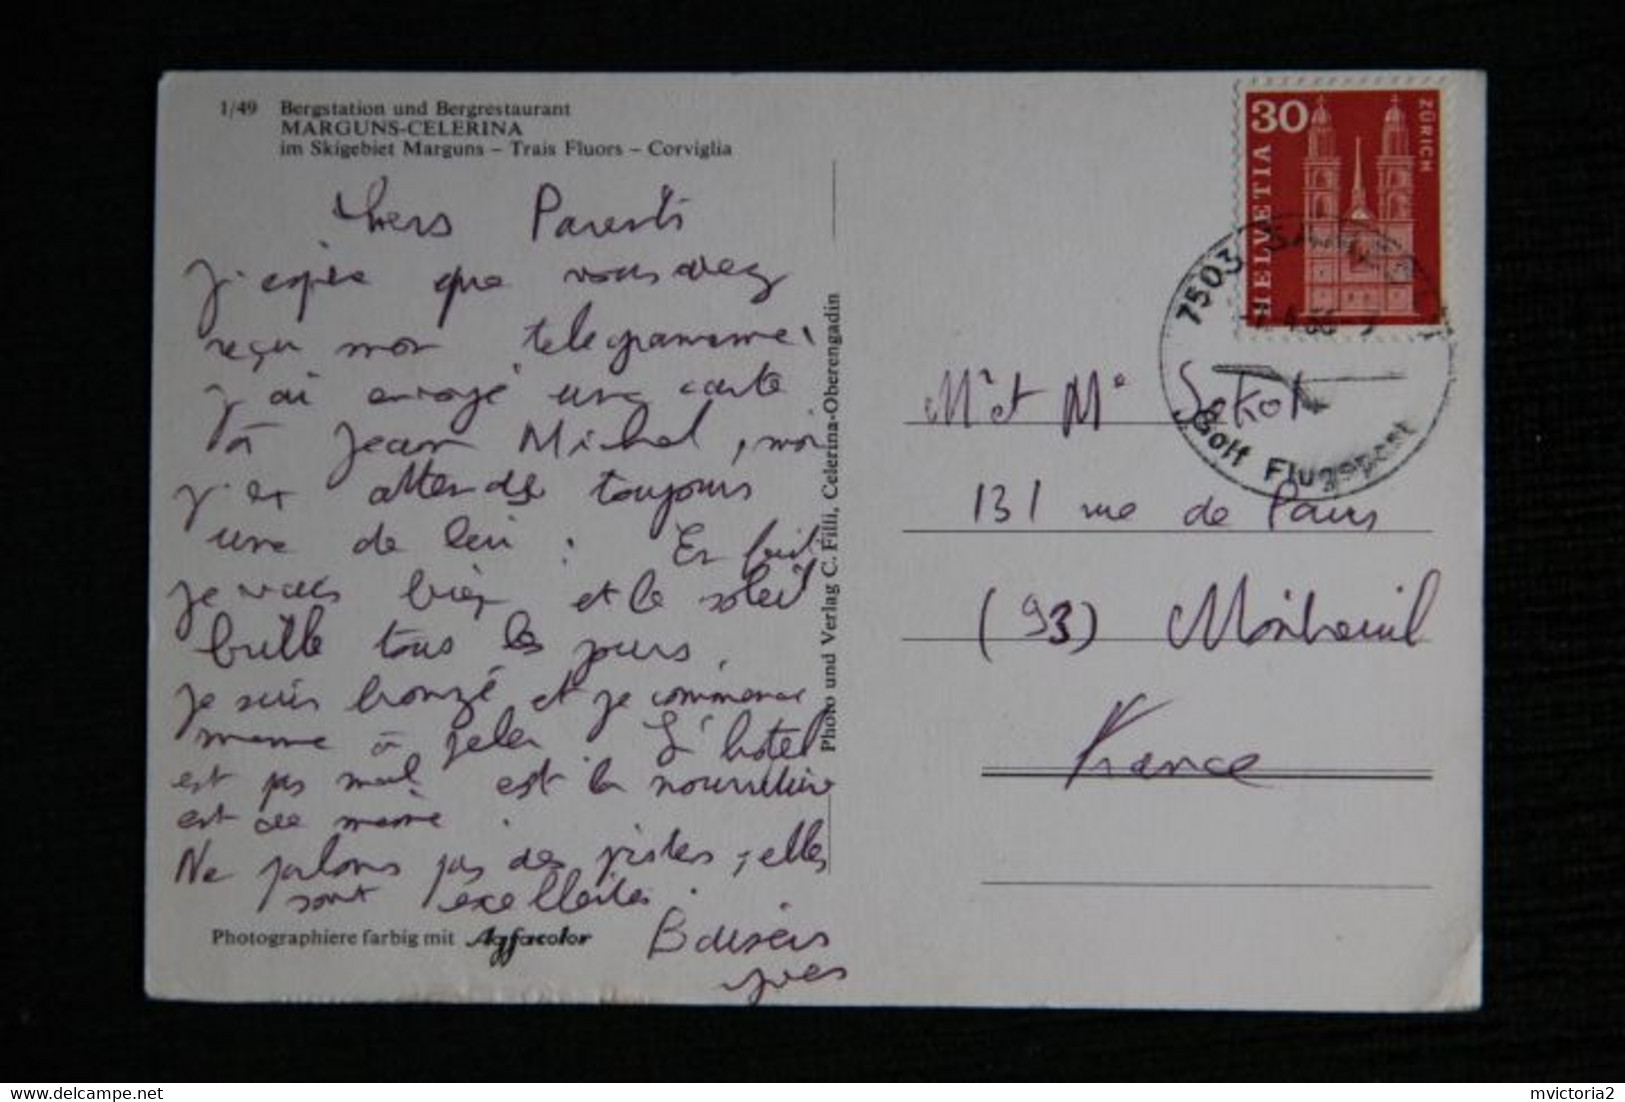 1/49 Bergstation und Bergrestaurant
MARGUNS-CELERINA
im Skigebiet Marguns – Trais Fluors – Corviglia
Chers Parents
J'espère que vous avez
reçu mon telegramme,
j'ai envoyé une carte
à Jean Michel, moi
j'en attends toujours
une de lui. En fait
je vais bien et le soleil
brille tous les jours,
je suis bronzé et je commence
meme à peler L'hotel
est pas mal est la nourriture
est de meme.
Ne parlons pas des pistes, elles
sont excellentes.
Baisers
Yves
Photographiere farbig mit Agfacolor
Photo und Verlag C. Filli, Celerina-Oberengadin
30
HELVETIA
ZÜRICH
7503
Golf Flugsport
Mr et Me Sokol
131 rue de Paris
(93) Montreuil
France
mvictoria2